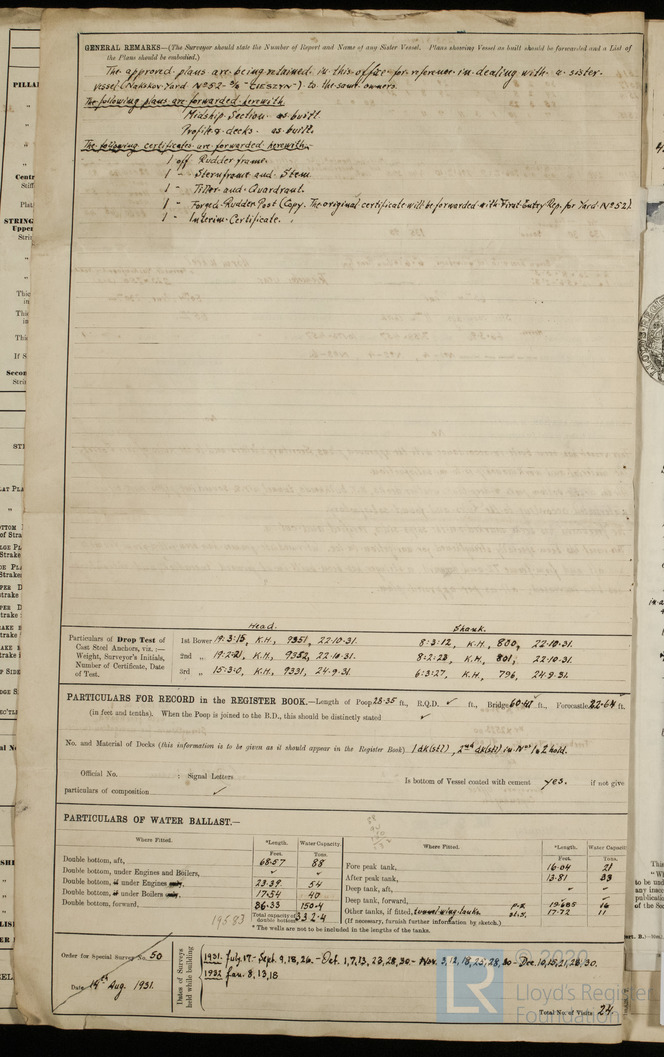 GENERAL REMARKS—(The Surveyor should state the Number of Report and Name of any Sister Vessel. Plans showing Vessel as built should be forwarded and a List of
the Plans should be embodied.)
The approved plans are being retained in this office for reference in dealing with a sister-
vessel (Nakskov Yard No 52 - S/S "CIESZYN") to the same owners.
The following plans are forwarded herewith
Midship Section as built.
Profile & decks. as built.
The following certificates are forwarded herewith.
1 off Rudder frame.
1 " Sternframe and Stem
1 " Tiller and Quardrant.
1 " Forged Rudder Post (Copy. The original certificate will be forwarded with First Entry Rep. for Yard No 52).
1 " Interim Certificate.
Head. Shank.
Particulars of Drop Test of
Cast Steel Anchors, viz. :—
Weight, Surveyor's Initials,
Number of Certificate, Date
of Test.
1st Bower 19:3:15, K.H., 9351, 22-10-31. 8:3:12, K.H., 800, 22-10-31.
2nd „ 19:2:21, K.H., 9352, 22-10-31. 8:2:23, K.H., 801, 22-10-31.
3rd „ 15:3:0, K.H., 9331, 24-9-31. 6:3:27, K.H., 796, 24-9-31.
PARTICULARS FOR RECORD in the REGISTER BOOK.—Length of Poop 28.35 ft., R.Q.D. ✓ ft., Bridge 60.41 ft., Forecastle 22.64 ft.
(in feet and tenths). When the Poop is joined to the B.D., this should be distinctly stated ✓
No. and Material of Decks (this information is to be given as it should appear in the Register Book) 1 dk (stl), 2nd dk (stl) in No 1 & 2 hold.
Official No. : Signal Letters Is bottom of Vessel coated with cement yes. if not give
particulars of composition ✓
PARTICULARS OF WATER BALLAST.—
Where Fitted. *Length. Water Capacity.
Feet. Tons.
Double bottom, aft, 68.57 88
Double bottom, under Engines and Boilers, ✓ ✓
Double bottom, if under Engines only, 23.39 54
Double bottom, if under Boilers only, 17.54 40
Double bottom, forward, 86.33 150.4
Total capacity of double bottom 332.4
19583
* The wells are not to be included in the lengths of the tanks.
Where Fitted. *Length. Water Capacit
Feet. Tons.
Fore peak tank, 16.04 21
After peak tank, 13.81 33
Deep tank, aft, ✓ ✓
Deep tank, forward,
Other tanks, if fitted, tunnel wing tanks. p.s. 19.685 16
st.s. 17.72 11
(If necessary, furnish further information by sketch.)
Order for Special Survey No. 50
Date 19th Aug. 1931.
Dates of Surveys
held while building
1931. July. 17 - Sept. 9, 18, 26. - Oct. 1, 7, 13, 23, 28, 30. - Nov. 3, 12, 18, 23, 28, 30 - Dec. 10, 15, 21, 28, 30.
1932 Jan. 8, 13, 18
Total No. of Visits 24.
© 2020
LR
Lloyd's Register
Foundation